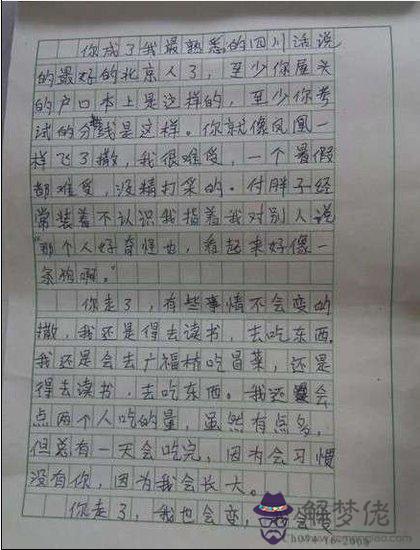 你成了我最熟悉的四川话说
的最好的北京人了，至少你屋头
的户口本上是这样的，至少你考
试的分线是这样。你就像凤凰一
样飞了撒，我很难受，一个暑假
都难受，没精打采的。付胖子经
常装着不认识我指着我对别人说
“那个人好奇怪也，看起来好像一
条狗啊。”
你走了，有些事情不会变的
撒，我还是得去读书，去吃东西。
我还是会去广福桥吃冒菜，还是
得去读书，去吃东西。我还会
点两个人吃的量，虽然有点多，
但总有一天会吃完，因为会习惯
没有你，因为我会长大。
你走了，我也会变，
解梦佬